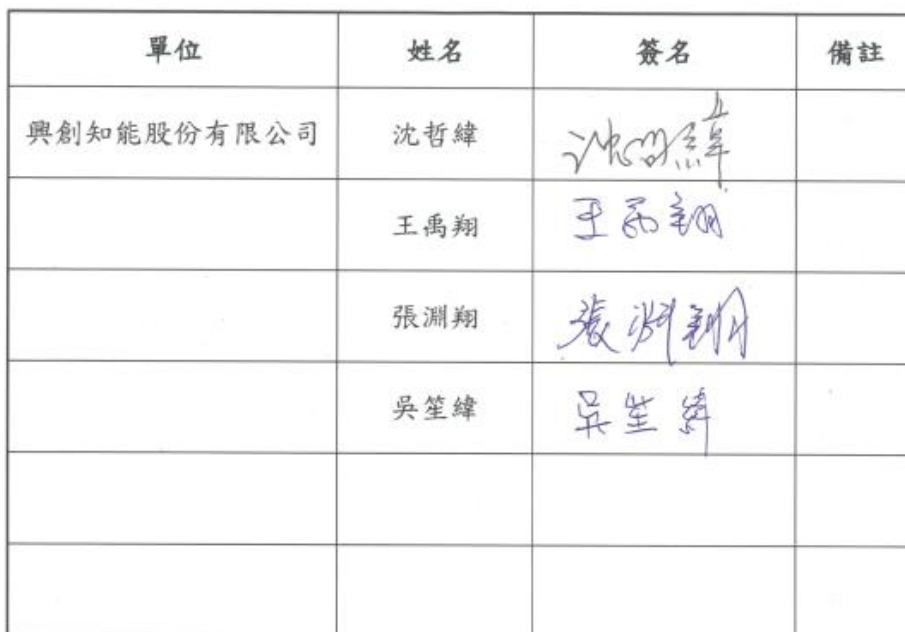 單位 姓名 簽名 備註
興創知能股份有限公司 沈哲緯 沈哲緯
王禹翔 王禹翔
張淵翔 張淵翔
吳笙緯 吳笙緯